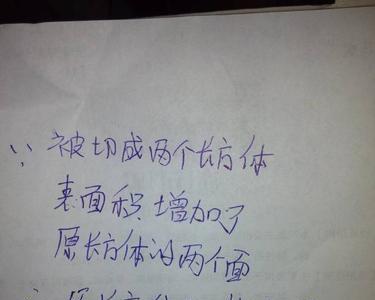 ∵ 被切成两个长方体
表面积增加了
原长方体的两个面